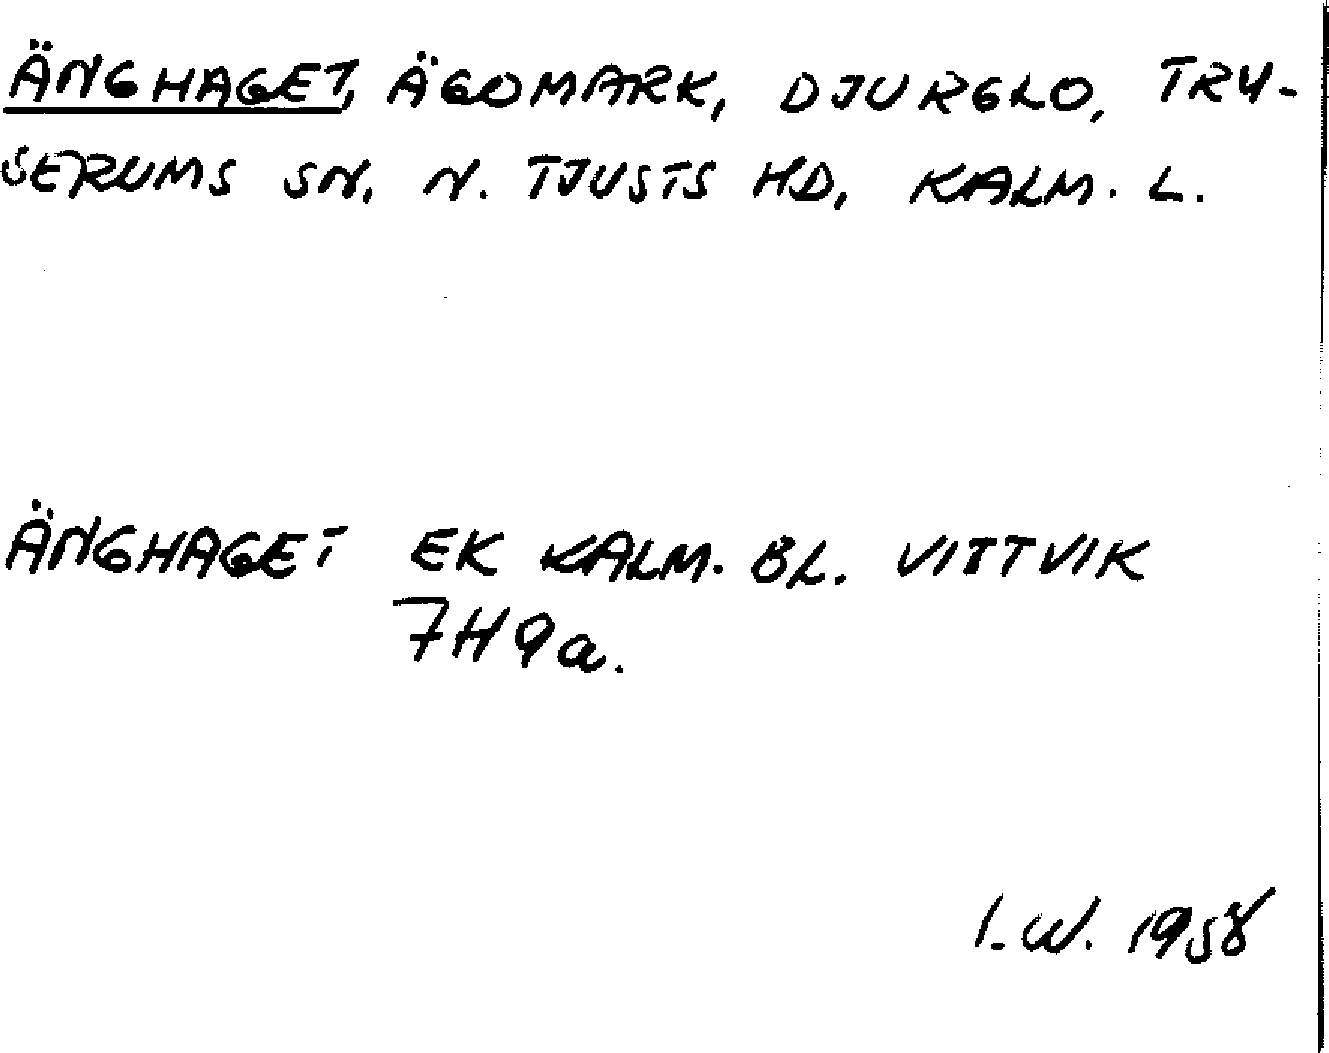 ÄNGHAGET, ÄGOMARK, DJURGLO, TRY-
SERUMS SN. N. TJUSTS HD, KALM. L.
ÄNGHAGET EK KALM. BL. VITTVIK
7H9a.
I.W. 1958